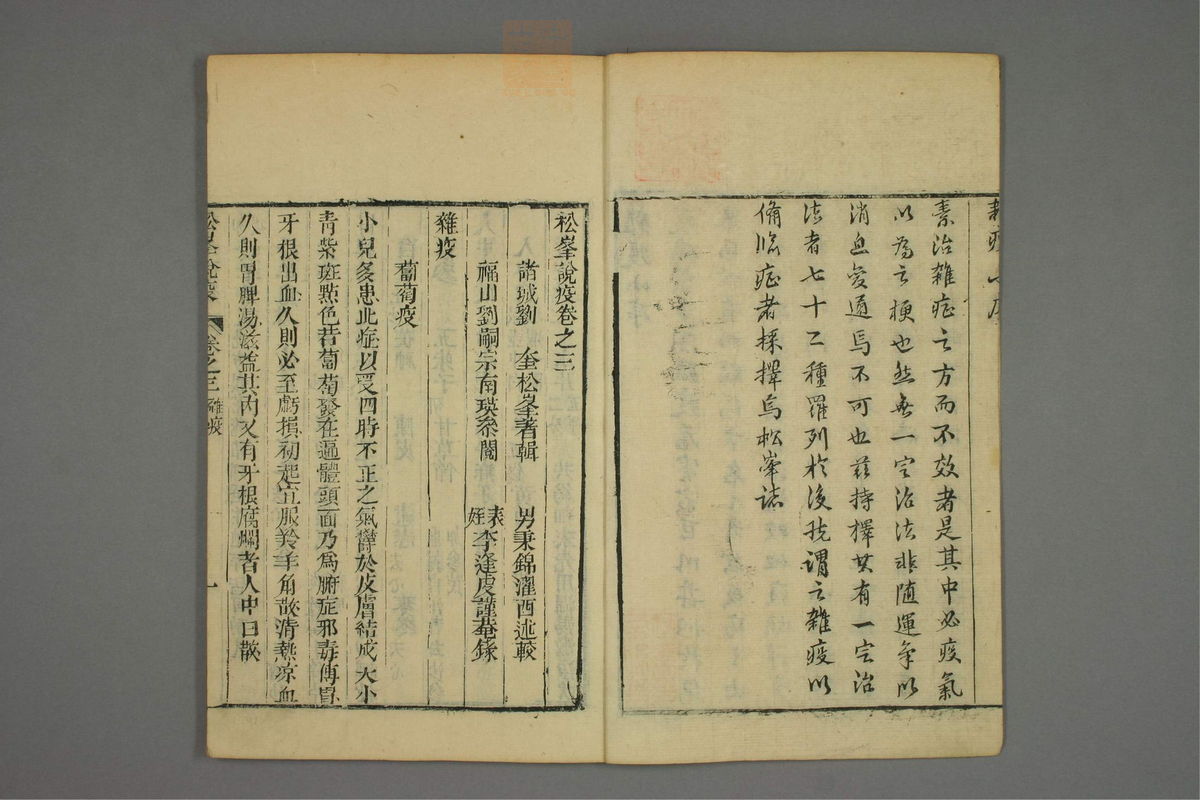 素治雜症之方而不效者是其中必疫氣
以為之梗也然無一定治法非隨運氣以
消息變通焉不可也茲特擇其有一定治
法者七十二種羅列於後統謂之雜疫以
備臨症者採擇焉松峯誌
松峯說疫卷之三
諸城劉 奎松峯著輯 男秉錦濯西述較
福山劉嗣宗南瑛叅閱 表姪李逢虔謹菴錄
雜疫
葡萄疫
小兒多患此症以受四時不正之氣鬱於皮膚結成大小
青紫斑點色若葡萄發在遍體頭面乃為腑症邪毒傳胃
牙根出血久則必至虧損初起宜服羚羊角散清熱凉血
久則胃脾湯滋益其內又有牙根腐爛者人中白散
松峯說疫 卷之三 雜疫 一